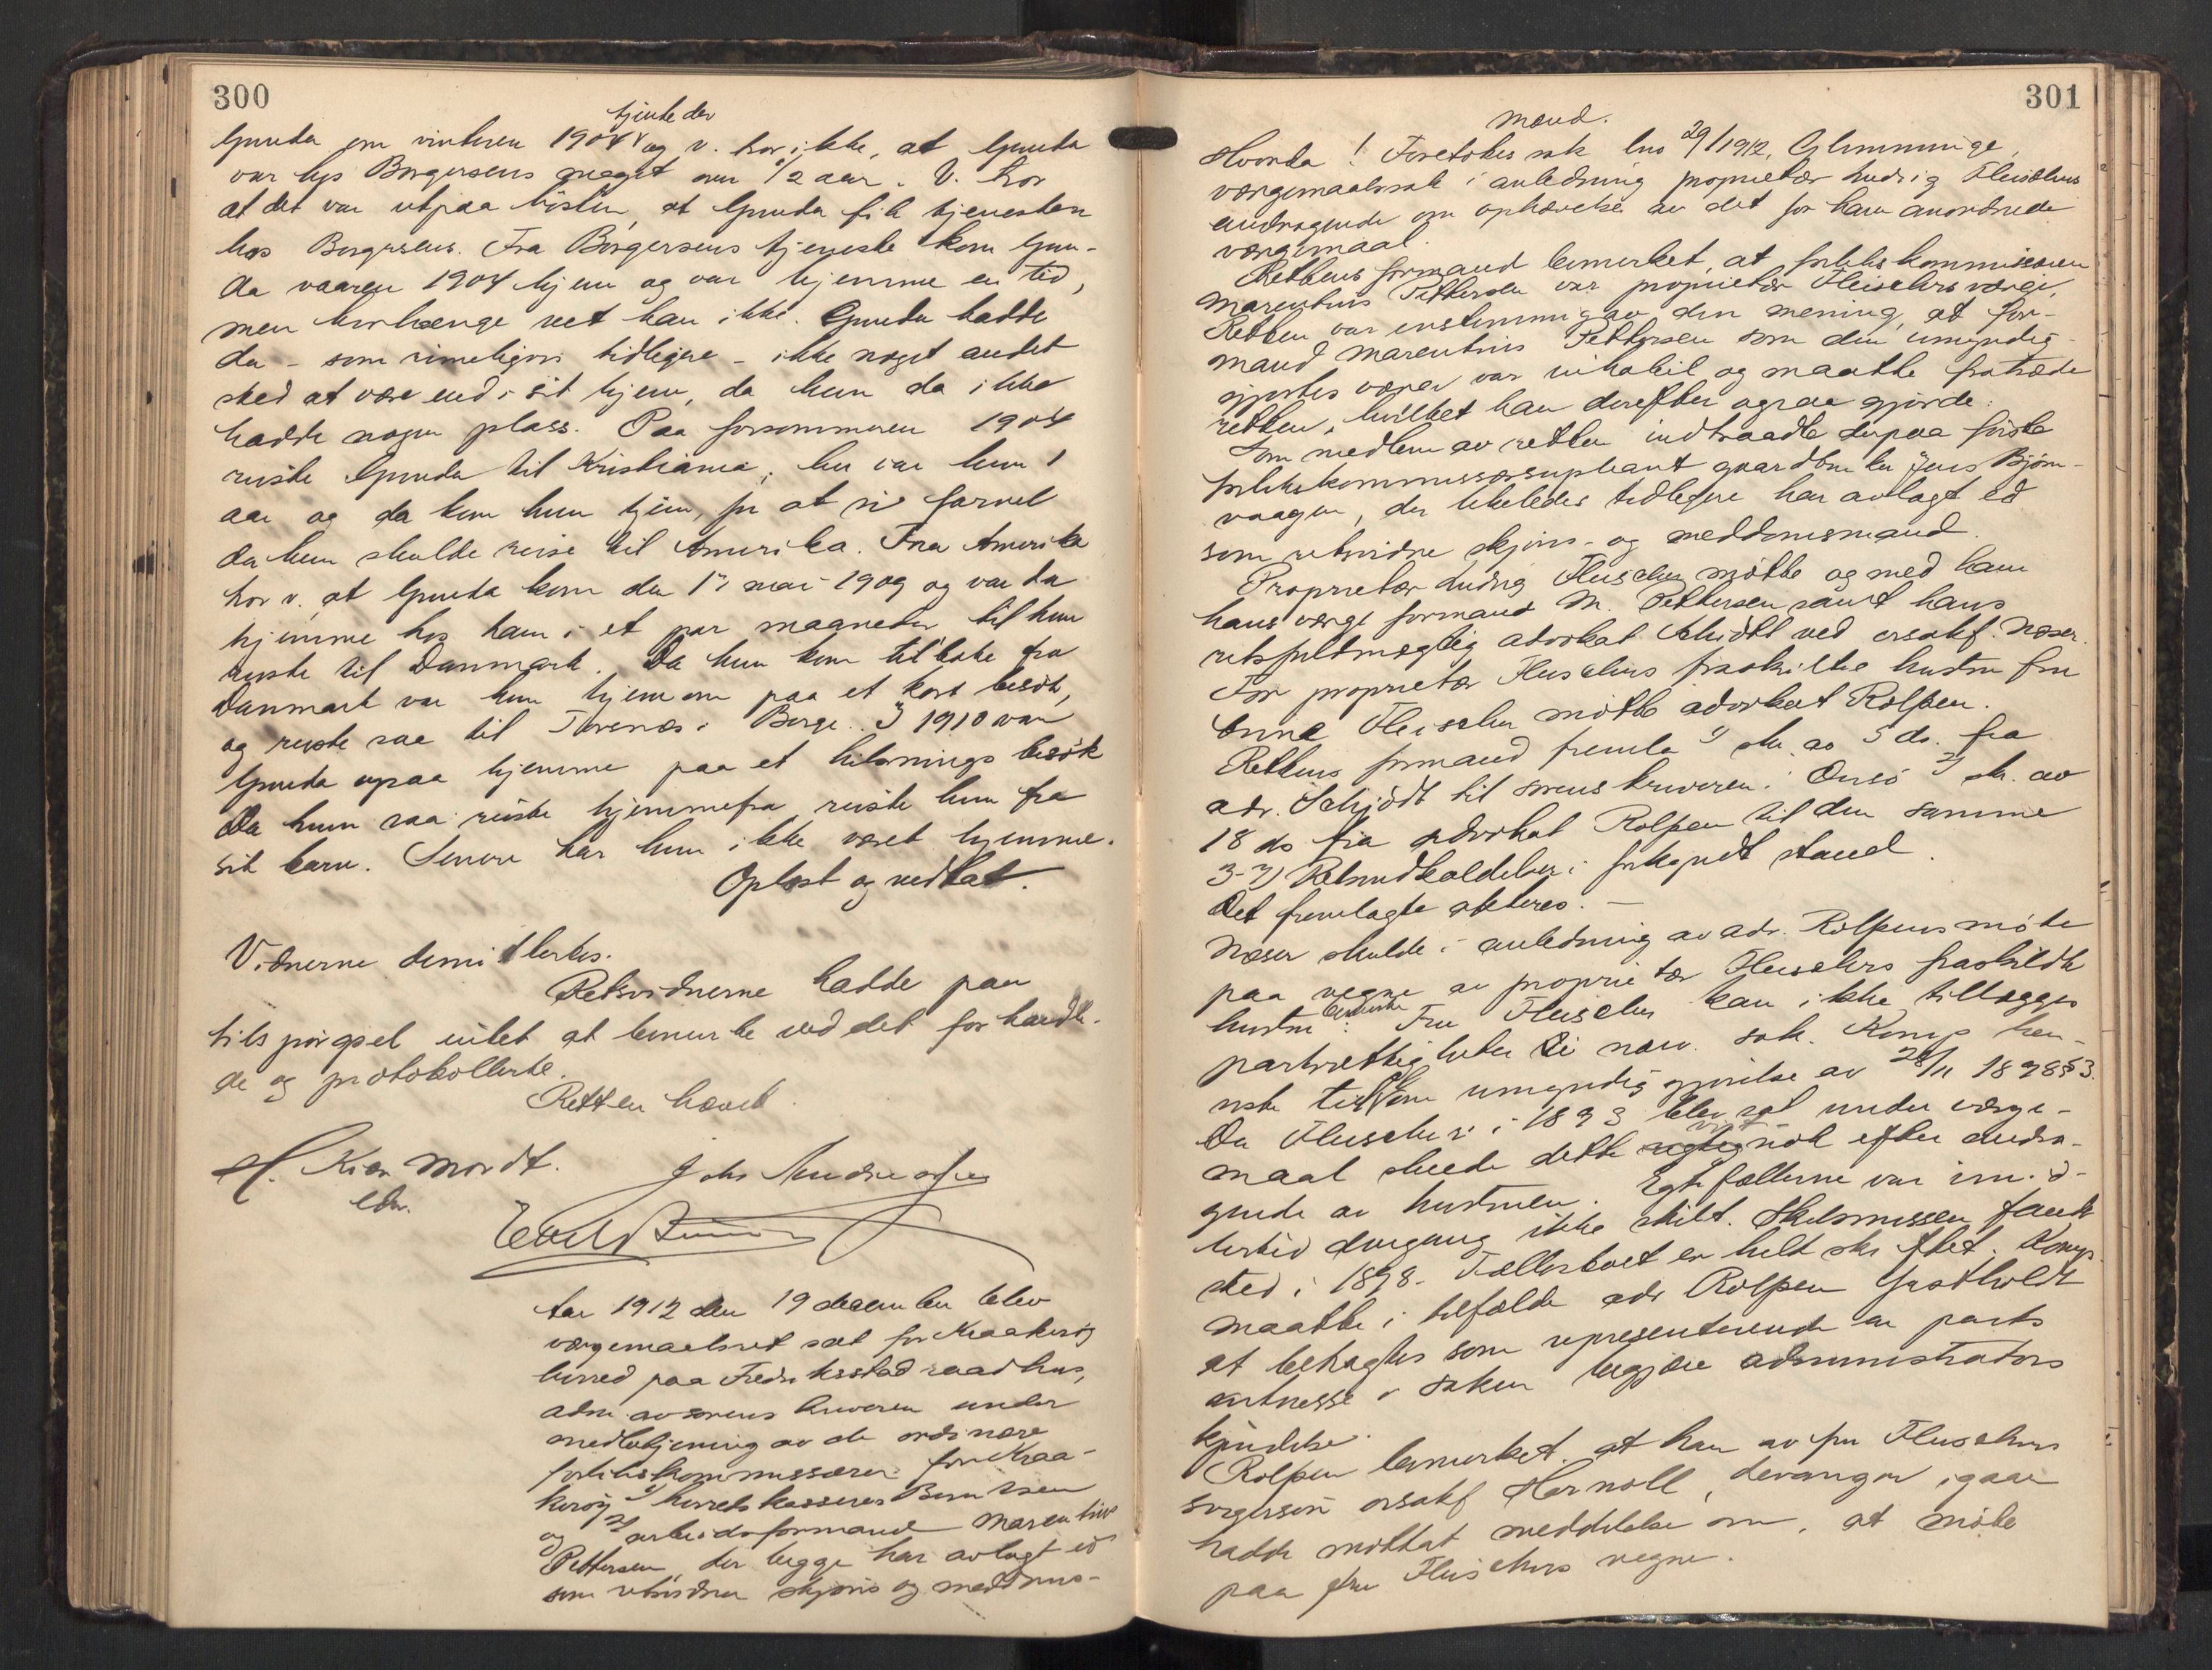 300
tjente der
Gunda om vinteren 1904 og v. tror ikke, at Gunda
var hos Borgersens meget over 1/2 aar. V. tror
at det var utpaa høsten, at Gunda fik tjenesten
hos Borgersens. Fra Borgersens tjeneste kom Gun-
da vaaren 1904 hjem og var hjemme en tid,
men hvorlænge vet han ikke. Gunda hadde
da - som rimeligvis tidligere - ikke noget andet
sted at være end i sit hjem, da hun da ikke
hadde nogen plass. Paa forsommeren 1904
reiste Gunda til Kristiania; her var hun 1
aar og da kom hun hjem, for at si farvel
da hun skulde reise til Amerika. Fra Amerika
tror v. at Gunda kom den 17 mai 1909 og var da
hjemme hos ham i et par maaneder til hun
reiste til Danmark. Da hun kom tilbake fra
Danmark var hun hjemom paa et kort besøk,
og reiste saa til Torsnæs i Borge. I 1910 var
Gunda ogsaa hjemme paa et hilsnings besøk
Da hun saa reiste hjemmefra reiste hun fra
sit barn. Senere har hun ikke været hjemme.
Oplæst og vedtat.
Vidnerne demitteres.
Retsvidnerne hadde paa
tilspørgsel intet at bemerke ved det forhandle-
de og protokollerte.
Retten hævet.
H. Kiær Mordt.
edv.
Johs Andreassen
tar 1912 den 19 december blev
værgemaalsret sat for Kraakerøy
herred paa Fredriksstad raadhus,
adm. av sorenskriveren under
medbetjening av de ordinære
forlikskommissærer for Kraa-
kerøy 1) herredskasserer Berntsen
og 2) arbeidsformand Marentius
Pettersen, der begge har avlagt ed
som retsvidner skjøns og meddoms-
301
mænd.
Hvorda! Foretokes sak lno 29/1912, Glemminge,
værgemaalssak i anledning proprietær Ludvig Fleischers
andragende om ophævelse av det for ham anordnede
værgemaal.
Rettens formand bemerket, at forlikskommissæren
Marentius Pettersen var proprietær Fleischers værge,
Retten var enstemmig av den mening, at for-
mand Marentius Pettersen som den umyndig-
gjortes værge var inhabil og maatte fratræde
retten, hvilket han derefter ogsaa gjorde.
Som medlem av retten indtraadte derpaa første
forlikskommissærsupleant gaardbruker Jens Bjørn-
vaagen, der likeledes tidligere har avlagt ed
som retsvidne skjøns- og meddomsmand.
Proprietær Ludvig Fleischer møtte og med ham
hans værge formand M. Pettersen samt hans
retsfuldmægtig advokat Schiødt ved orsakf. Næser.
For proprietær Fleischers fraskilte hustru fru
Anna Fleischer møtte advokat Rolfsen.
Rettens formand fremla 1) skr. av 5 ds. fra
adv. Schjødt til sorenskriveren i Onsø 2) sk. av
18 ds fra advokat Rolfsen til den samme
3-7) Retsindkaldelser i forkyndt stand.
Det fremlagte akteres. -
Næser skulde i anledning av adv. Rolfsens møte
paa vegne av proprietær Fleischers fraskildte
hustru bemerke: Fru Fleischer kan ikke tillægges
partsrettigheter i nærv. sak. Konf. hen-
viste til lov om umyndiggjørelse av 28/11 1898 § 3.
Da Fleischer i 1893 blev sat under værge-
maal skede dette vist nok efter andra-
gende av hustruen. Egtefællerne var imid-
lertid dengang ikke skilt. Skilsmissen fandt
sted i 1898. Fællesboet er helt skiftet. Komp.
maatte i tilfælde adv Rolfsen fastholdt
at betragtes som representerende en parts
interesse i saken begjære administrators
kjendelse.
Rolfsen bemerket, at han av fru Fleischers
sagfører orsakf Hornoll, Levanger, igaar
hadde mottat meddelelse om, at møte
paa fru Fleischers vegne.